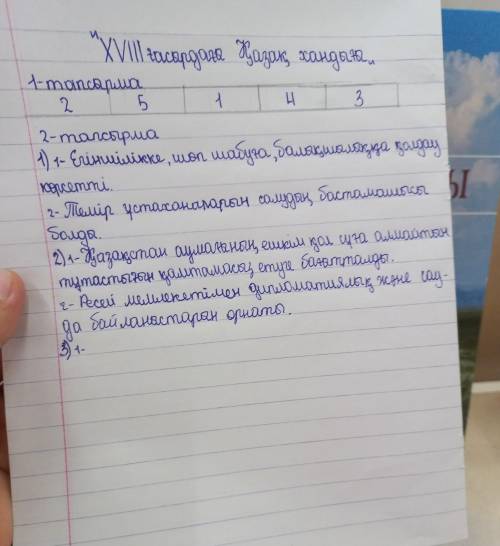 "XVIII ғасырдағы Қазақ хандығы„
1-тапсырма
2 5 1 4 3
2-тапсырма
1) 1- Егіншілікке, шөп шабуға, балықшылыққа қолдау
көрсетті.
2- Темір ұстаханаларын салудың бастамашысы
болды.
2) 1- Қазақстан аумағының ешкім қол сұға алмайтын
тұтастығын қамтамасыз етуге бағытталды.
2- Ресей мемлекетімен дипломатиялық және сау-
да байланыстарын орнаты.
3) 1-
Ы